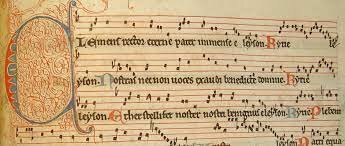 Clemens rector eterne pater immense eleyson. Kyrie
eyson. Nostras necnon uoces exaudi benedicte domine. Kyrie
eleyson. Ether stellifer noster nostri benignius eleyson. Plebem